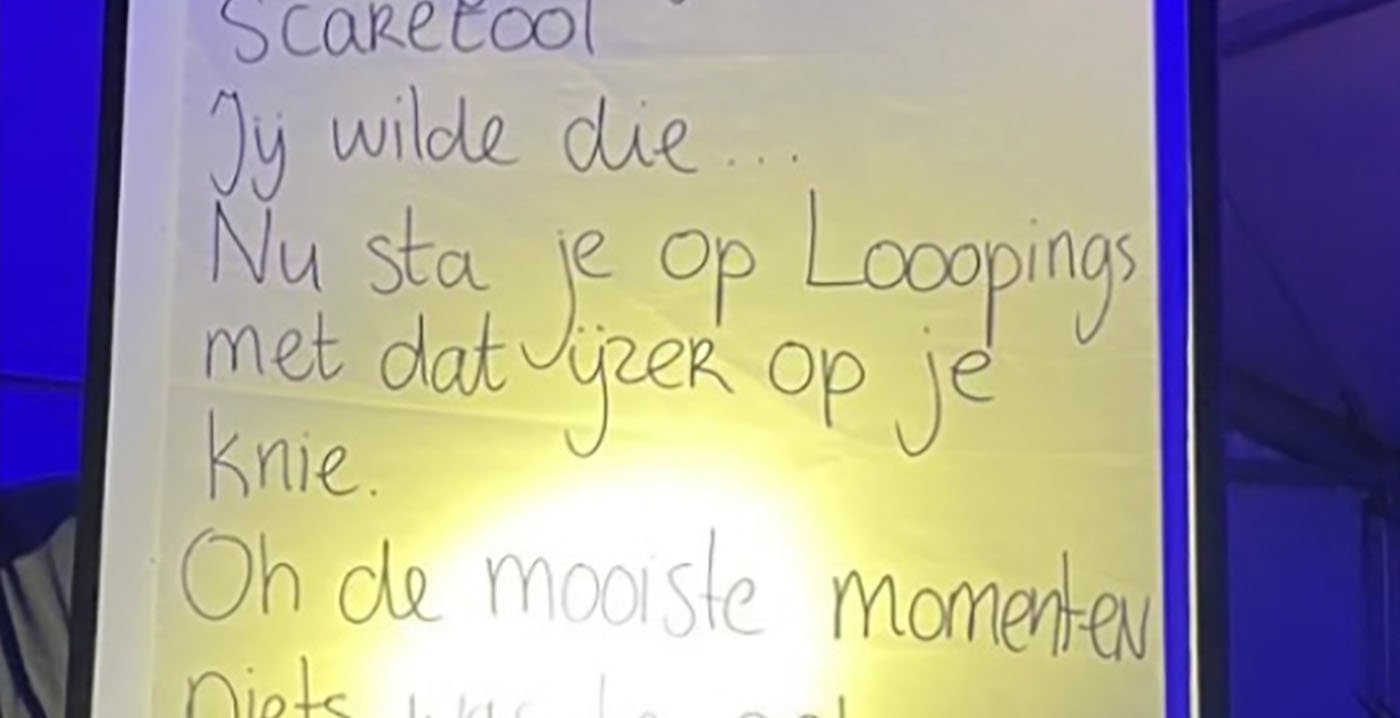 Scaretool
Jij wilde die...
Nu sta je op Looopings
met dat ijzer op je
knie.
Oh de mooiste momenten
niets was te gek